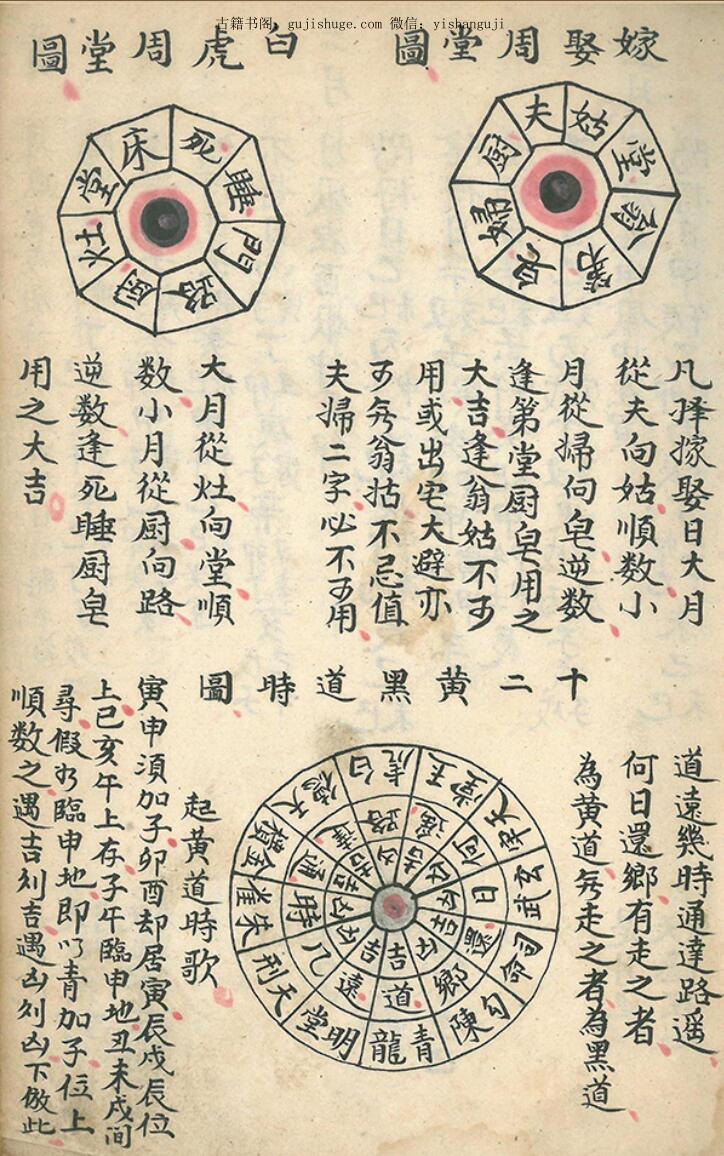 古籍书阁：gujishuge.com 微信：yishanguji
嫁娶周堂圖
夫姑堂翁第皂婦厨
凡择嫁娶日大月
從夫向姑順数小
月從婦向皂逆数
逢第堂厨皂用之
大吉逢翁姑不可
用或出宅大避亦
可無翁姑不忌值
夫婦二字必不可用
白虎周堂圖
床死睡門路厨灶堂
大月從灶向堂順
数小月從厨向路
逆数逢死睡厨皂
用之大吉
十二黄黑道時圖
道遠幾時通達路遥
何日還鄉有走之者
為黄道無走之者為黑道
青龍
明堂
天刑
朱雀
金匱
天德
白虎
玉堂
天牢
玄武
司命
勾陳
道遠几時通達路遥何日還鄉
吉吉凶凶吉吉凶吉凶凶吉凶
起黄道時歌
寅申須加子卯酉却居寅辰戌辰位
上巳亥午上存子午臨申地丑未戌间
尋假如臨申地即以青加子位上
順数之遇吉则吉遇凶则凶下倣此